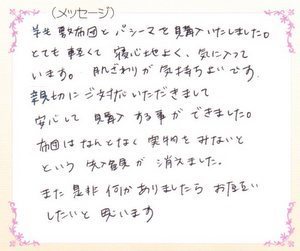 (メッセージ)
羊毛敷布団とパシーマで購入いたしました。
とても軽くて寝心地よく、気に入って
います。肌ざわりが気持ちよいです。
親切にご対応いただきまして
安心して購入する事ができました。
布団はなんとなく実物をみないと
という先入観が消えました。
また是非何かありましたらお願い
したいと思います